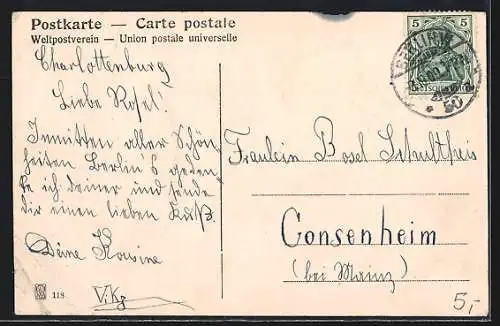 Postkarte — Carte postale
Weltpostverein — Union postale universelle
5 5
BERLIN.W.
50
Charlottenburg
Liebe Rosel!
Inmitten aller Schön-
heiten Berlin's geden-
ke ich deiner und sende
dir einen lieben Kuß.
Deine Kousine
V.Kg
118
Fraulein Rosel Schultheis
Gonsenheim
(bei Mainz)
5,-